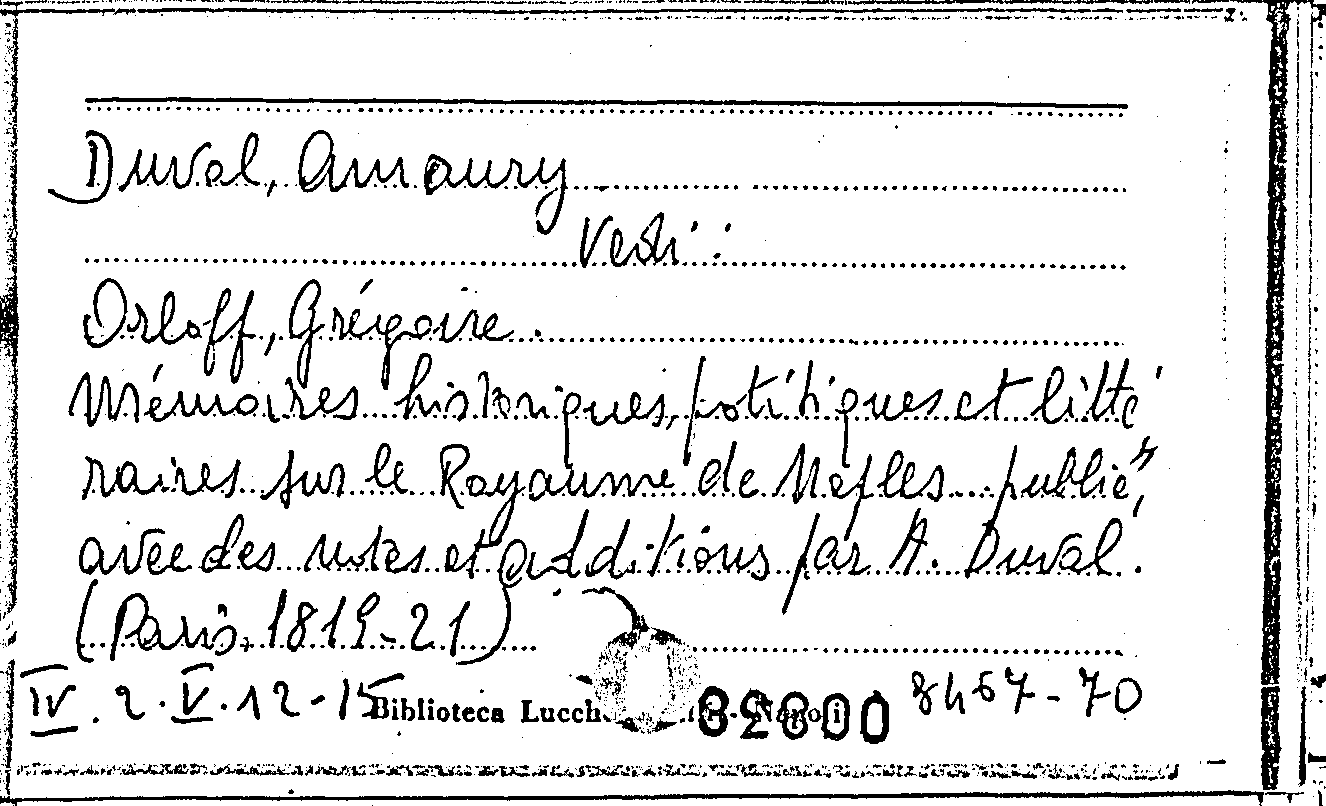 Duval, Amaury
Vedi:
Orloff, Grégoire.
Mémoires historiques, politiques et litté
raires sur le Royaume de Naples... publié,
avec des notes et additions par A. Duval.
(Paris, 1819-21)
IV. 2. V. 12-15 Biblioteca Lucch Napoli 8467-70